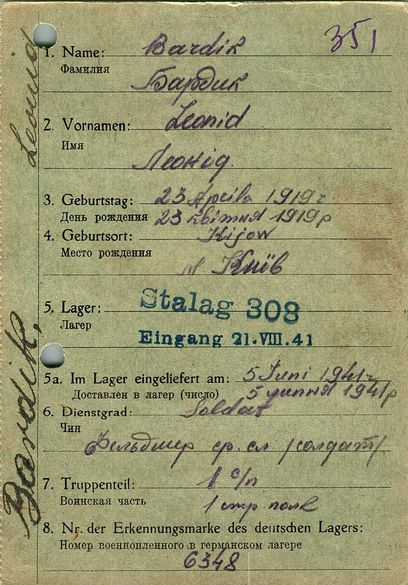 351
1. Name: Bardik
Фамилия
Бардик
2. Vornamen: Leonid
Имя
Леонід
3. Geburtstag: 23 Aprila 1919 г
День рождения 23 квітня 1919 р
4. Geburtsort: Kijow
Место рождения
м. Київ
5. Lager: Stalag 308
Лагер Eingang 21.VIII.41
5a. Im Lager eingeliefert am: 5 Juni 1941 г
Доставлен в лагер (число) 5 1941 р
6. Dienstgrad: Soldat
Чин
Фельдшер ср. сл. /солдат/
7. Truppenteil: 1 с/п
Воинская часть 1 стр полк
8. Nr. der Erkennungsmarke des deutschen Lagers:
Номер военнопленного в германском лагере
6348
Bardik, Leonid